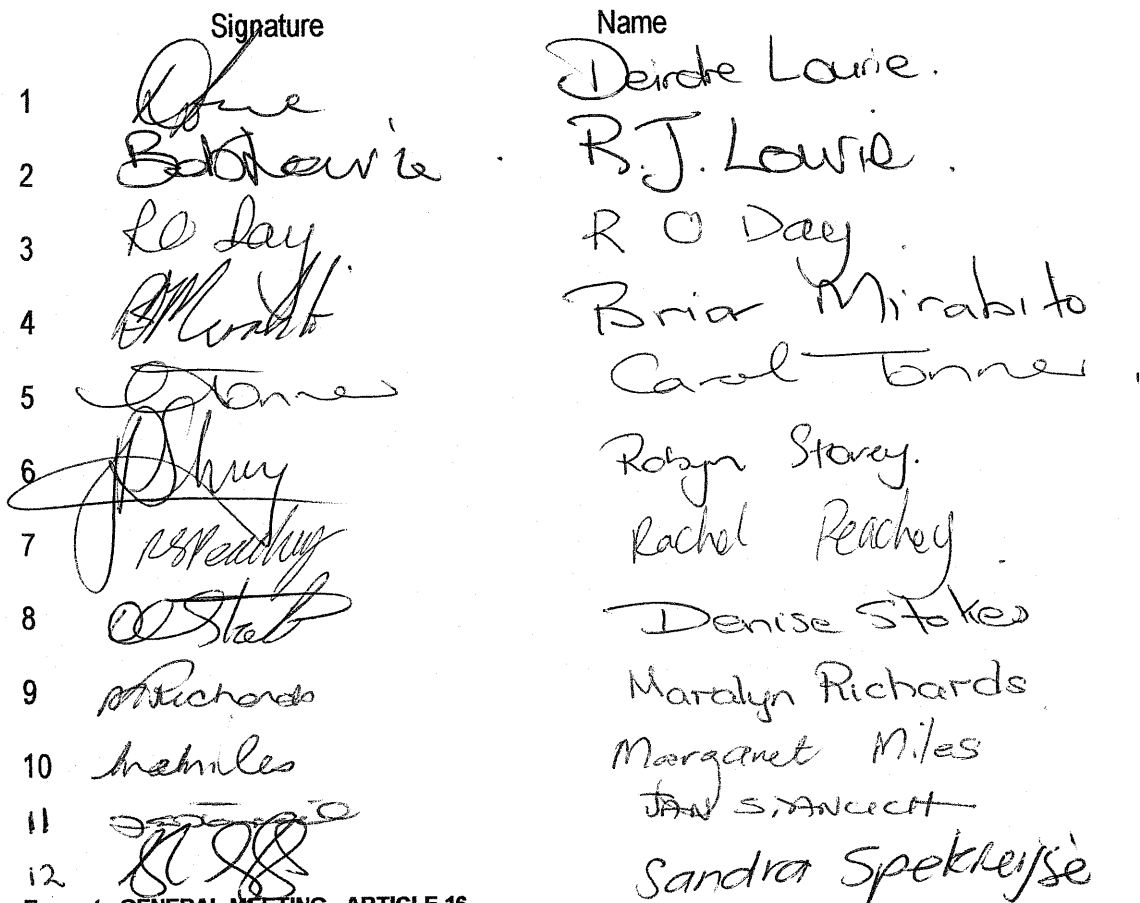 Signature Name
1 Deirdre Lourie.
2 Bob Lourie R.J. Lourie.
3 RO Day R O Day
4 Briar Mirabito
5 C Tonner Carol Tonner
6 Robyn Storey.
7 RSPeachey Rachel Peachey
8 Denise Stokes
9 Richards Maralyn Richards
10 Margaret Miles
11 JAN
12 Sandra Spekreijse
GENERAL MEETING ARTICLE 16